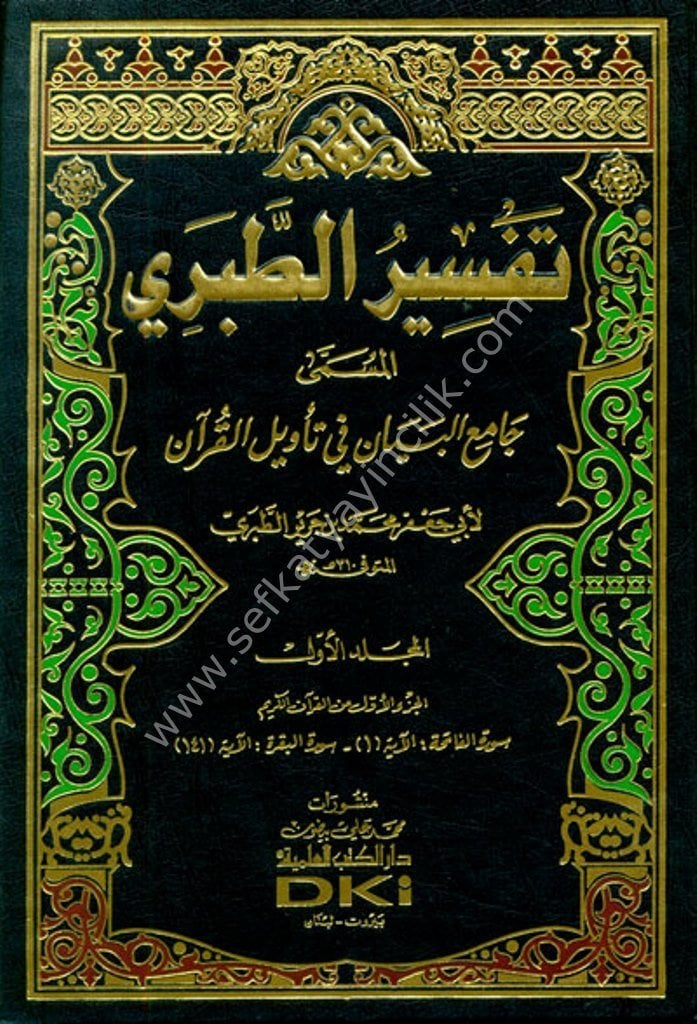 تَفْسِيرُ الطَّبَرِي
المُسَمَّى
جَامِعَ البَيَان فِي تَأْوِيل القُرآن
لأبي جَعْفَر محَمَّد بن جَرير الطَّبَريّ
المتوفى ٣١٠هـ
المجلد الأوّل
الجزء الأوّل من القرآن الكريم
سورة الفاتحة : الآية (١) - سورة البقرة : الآية (١٤١)
منشورات
محمد علي بيضون
دار الكتب العلمية
DKi
بيروت - لبنان
www.sefkatyayincilik.com